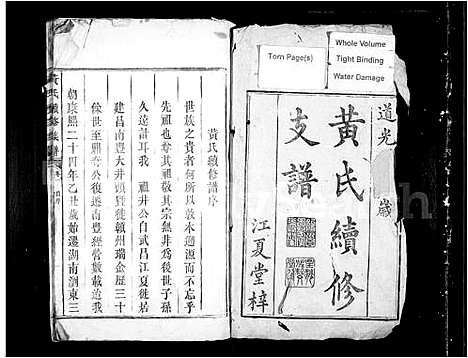 Torn Page(s)
Whole Volume
Tight Binding
Water Damage
道光 歲
黃氏續修
支譜
江夏堂梓
黃氏續修譜序
世族之貴者何所以敦本追源而不忘乎
先祖也尊其祖敬其宗無非為後世子孫
久遠計耳我 祖井公自武昌江夏徙居
建昌南豐大井頭暨徙贛州瑞金歷三十
餘世至興奇公復遷南豐經營數載迨
朝康熙二十四年乙丑歲始遷湖南瀏東三
黃氏續修